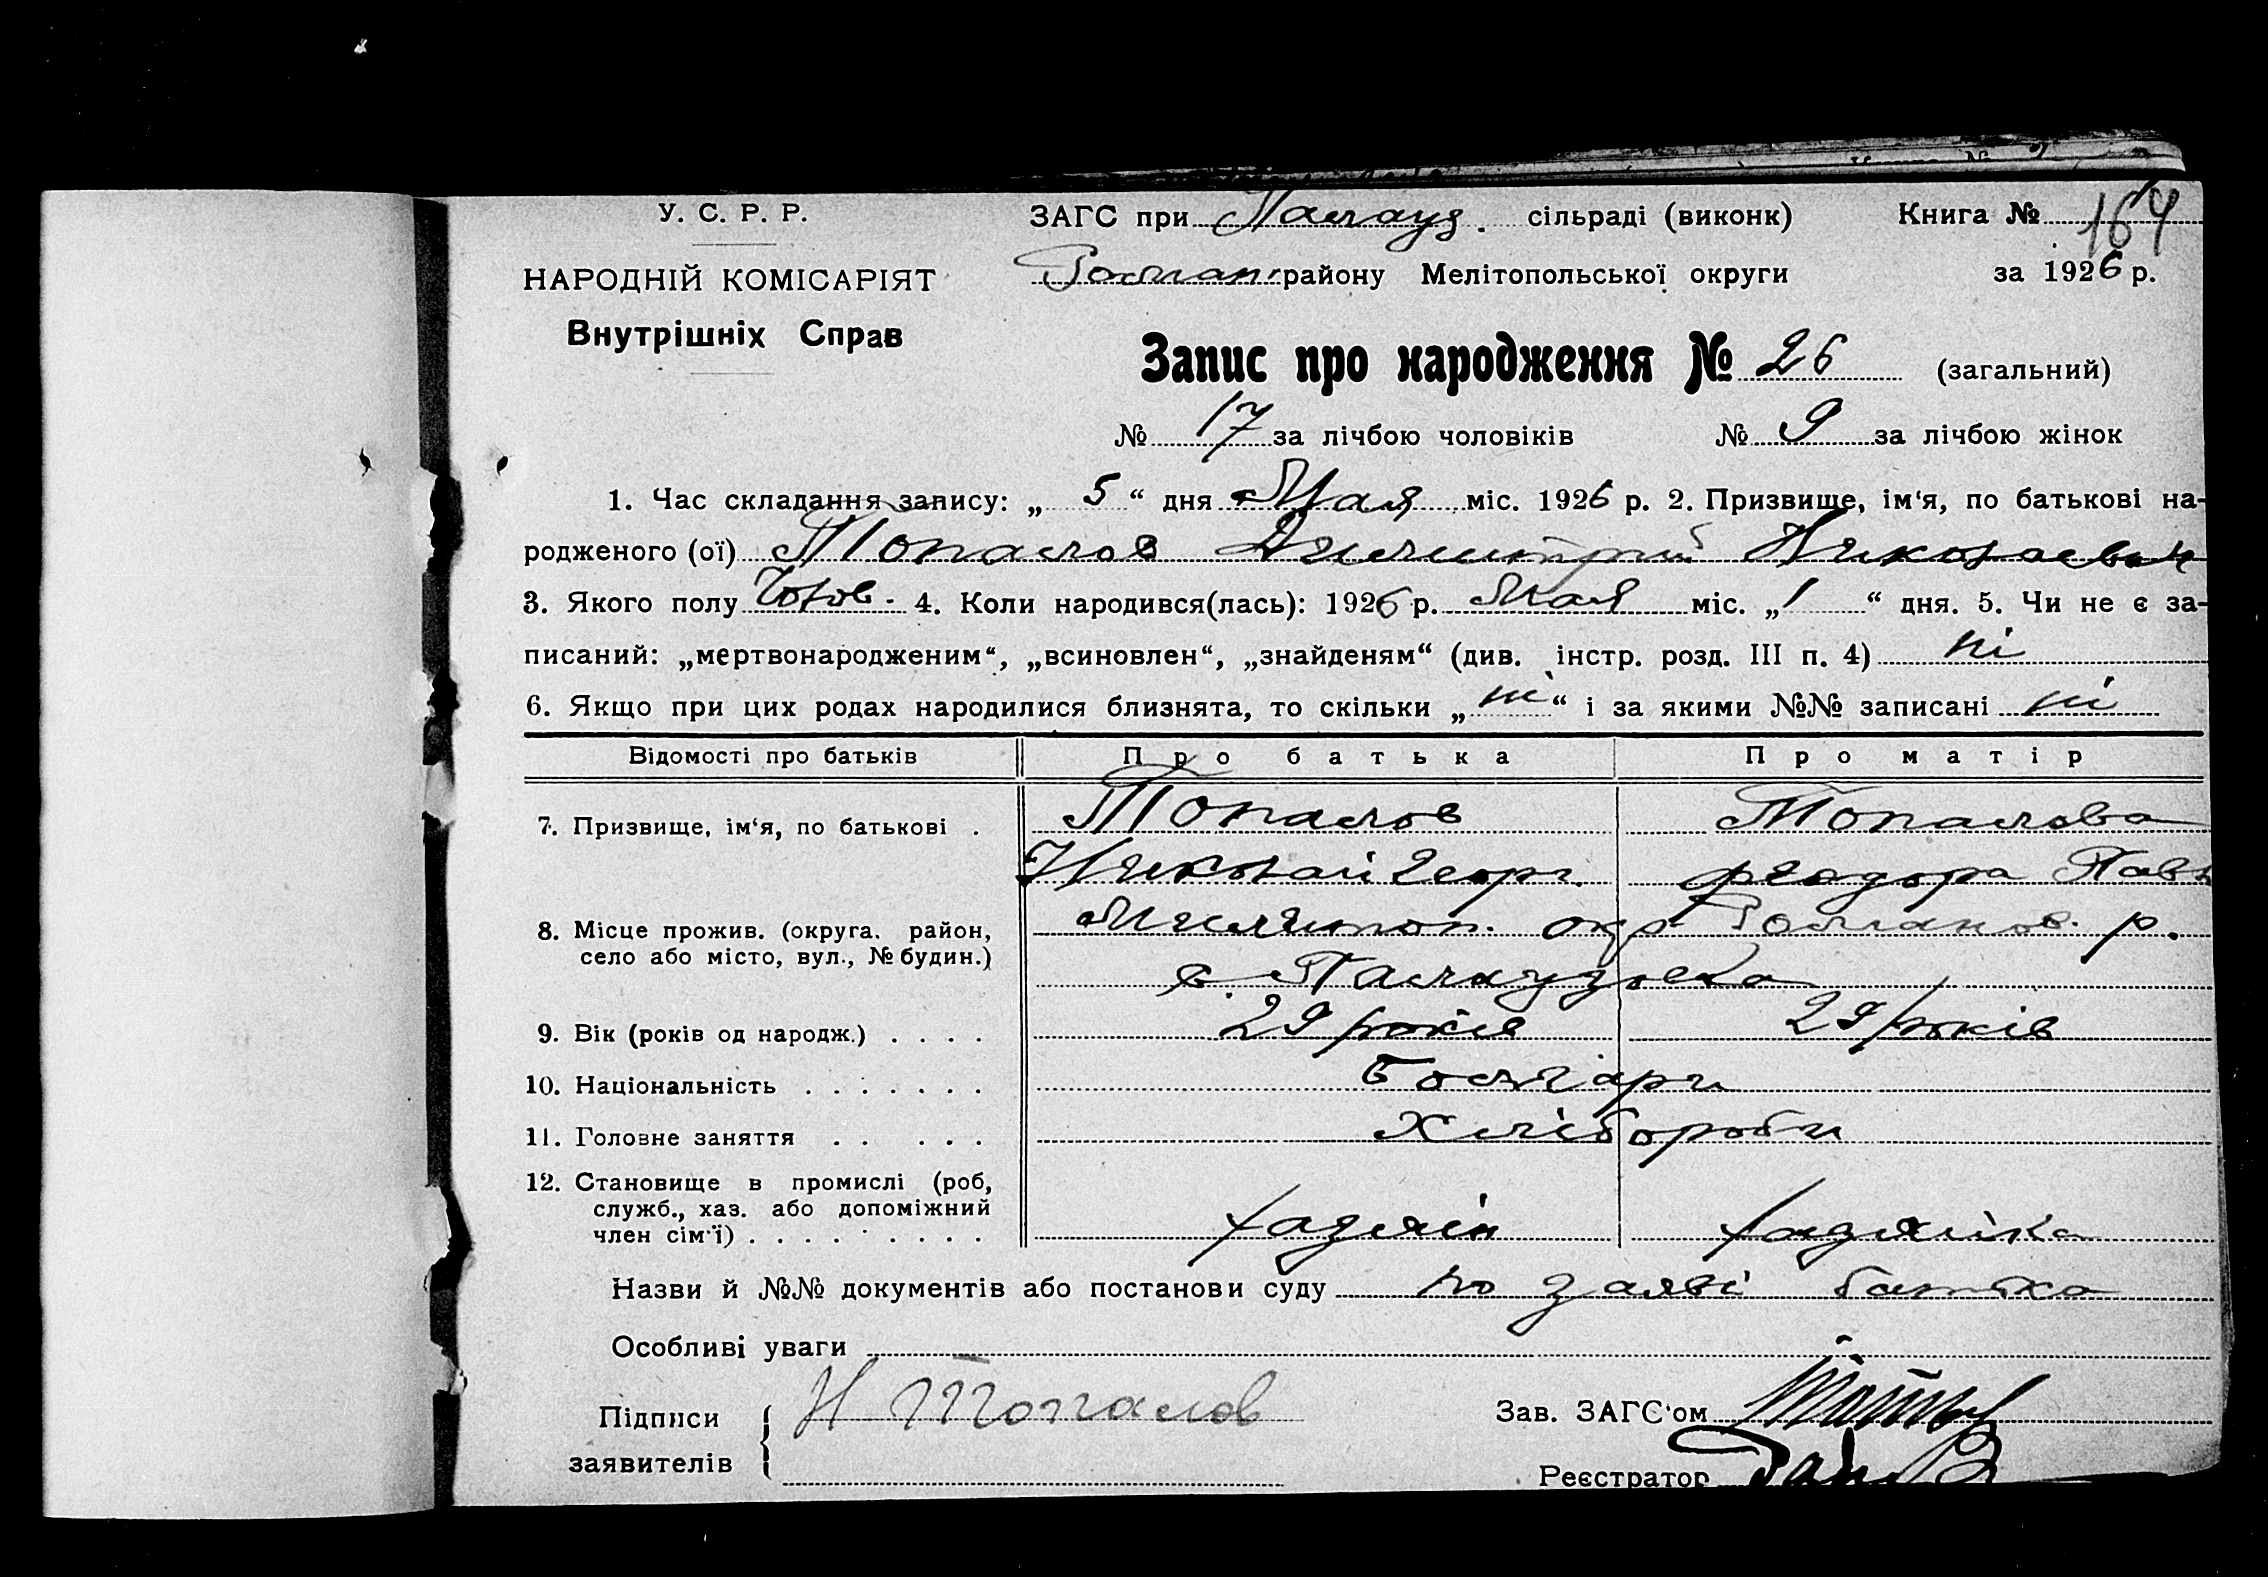 У. С. Р. Р.
НАРОДНІЙ КОМІСАРІЯТ
Внутрішніх Справ
ЗАГС при Палауз. сільраді (виконк) Книга № 164
Ботман. району Мелітопольської округи за 1926 р.
Запис про народження № 26 (загальний)
№ 17 за лічбою чоловіків № 9 за лічбою жінок
1. Час складання запису: „ 5 “ дня Мая міс. 1926 р. 2. Призвище, ім‘я, по батькові на-
родженого (ої) Топалов Димитрий Николаевич
3. Якого полу Чолов. 4. Коли народився(лась): 1926 р. Мая міс. „1 “ дня. 5. Чи не є за-
писаний: „мертвонародженим“, „всиновлен“, „знайденям“ (див. інстр. розд. III п. 4) ні
6. Якщо при цих родах народилися близнята, то скільки „ ні “ і за якими №№ записані ні
Відомості про батьків Про батька Про матір
7. Призвище, ім‘я, по батькові . Топалов Топалова
Николай Георг. Феодора Павл
8. Місце прожив. (округа. район, село або місто, вул., № будин.) Милитоп. окр р.
с.
9. Вік (років од народж.) . . . . 29 років 29 років
10. Національність . . . . . . . Болгари
11. Головне заняття . . . . . Хлібороби
12. Становище в промислі (роб, служб., хаз. або допоміжний член сім'ї) . . . . . . . . . хазяїн хазяйка
Назви й №№ документів або постанови суду по заяві батька
Особливі уваги
Підписи заявителів Н Топалов
Зав. ЗАГС‘ом
Реєстратор